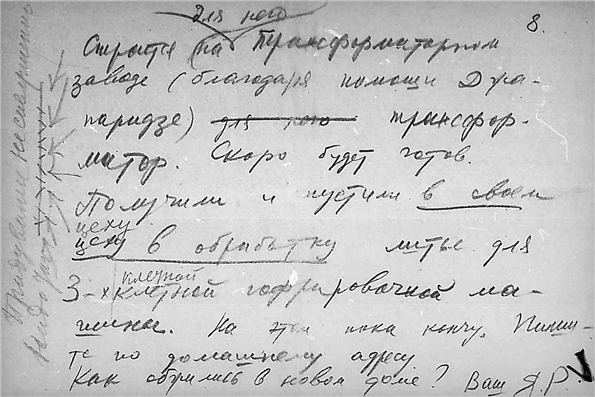 для него
8.
Строится на Трансформаторном
заводе (благодаря помощи Джа-
паридзе) для него трансфор-
матор. Скоро будет готов.
Получили и пустили в своем
цеху
цеху в обработку литье для
клетной
3-х клетной гофрировочной ма-
шины. На этом пока кончу. Пиши-
те по домашнему адресу
Как обжились в новом доме? Ваш Я.Р.